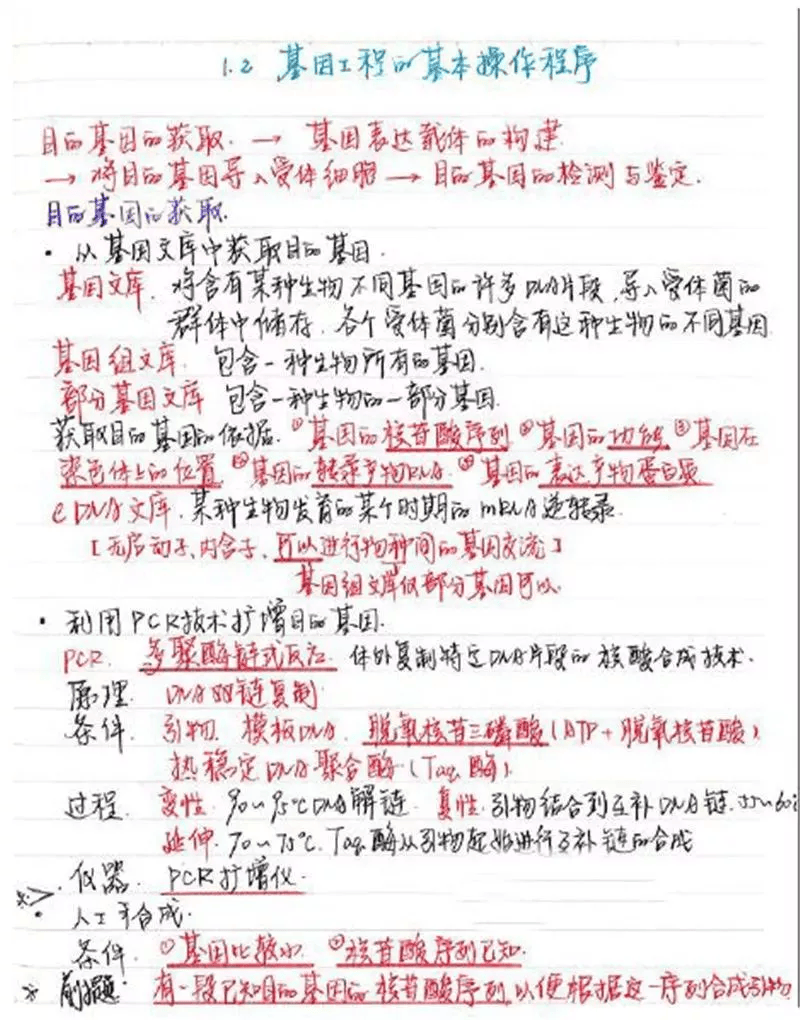 1.2 基因工程的基本操作程序
目的基因的获取. → 基因表达载体的构建
→ 将目的基因导入受体细胞 → 目的基因的检测与鉴定.
目的基因的获取.
· 从基因文库中获取目的基因.
基因文库. 将含有某种生物不同基因的许多DNA片段,导入受体菌的
群体中储存,各个受体菌分别含有这种生物的不同基因
基因组文库. 包含一种生物所有的基因.
部分基因文库 包含一种生物的一部分基因.
获取目的基因的依据. ①基因的核苷酸序列 ②基因的功能 ③基因在
染色体上的位置 ④基因的转录产物RNA. ⑤基因的表达产物蛋白质
cDNA文库. 某种生物发育的某个时期的mRNA逆转录.
[无启动子、内含子、可以进行物种间的基因交流]
基因组文库仅部分基因可以.
· 利用PCR技术扩增目的基因.
PCR. 多聚酶链式反应. 体外复制特定DNA片段的核酸合成技术.
原理. DNA双链复制
条件. 引物. 模板DNA. 脱氧核苷三磷酸(ATP+脱氧核苷酸).
热稳定DNA聚合酶(Taq酶).
过程. 变性. 90~95℃DNA解链. 复性. 引物结合到互补DNA链. 55~60℃
延伸. 70~75℃. Taq酶从引物起始进行互补链的合成
仪器. PCR扩增仪.
· 人工合成.
条件. ①基因比较小 ②核苷酸序列已知.
* 前提: 有一段已知目的基因的核苷酸序列以便根据这一序列合成引物